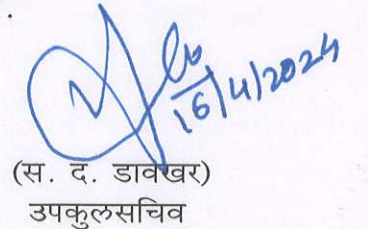 16/4/2024
(स. द. डावखर)
उपकुलसचिव